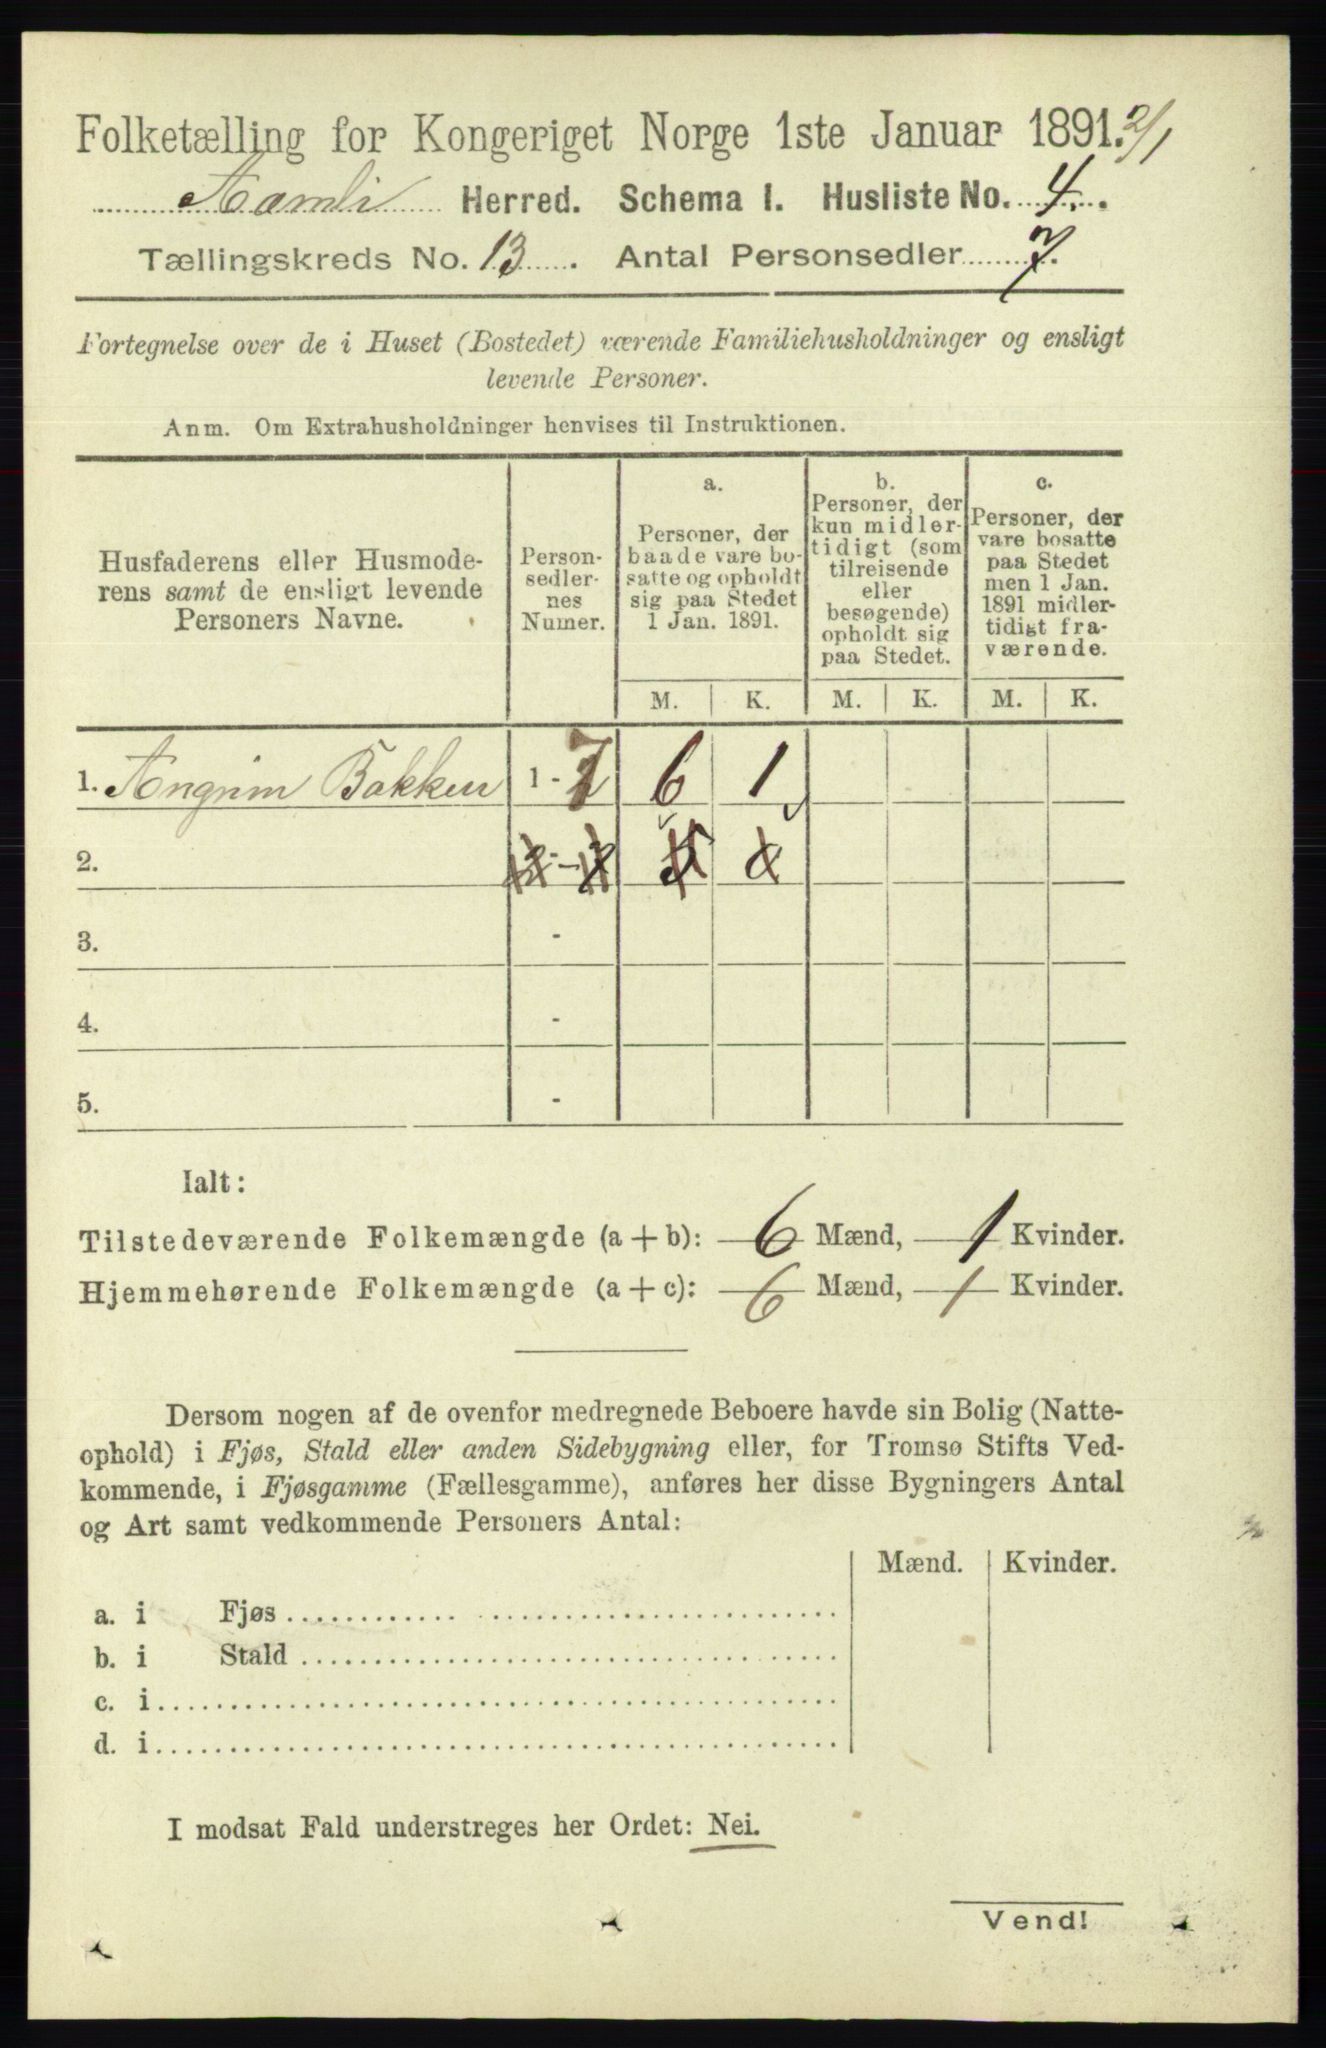 Folketælling for Kongeriget Norge 1ste Januar 1891. 2/1
Aamli Herred. Schema I. Husliste No. 4.
Tællingskreds No. 13. Antal Personsedler 7.
Fortegnelse over de i Huset (Bostedet) værende Familiehusholdninger og ensligt
levende Personer.
Anm. Om Extrahusholdninger henvises til Instruktionen.
Husfaderens eller Husmode-
rens samt de ensligt levende
Personers Navne.
Person-
sedler-
nes
Numer.
a.
Personer, der
baade vare bo-
satte og opholdt
sig paa Stedet
1 Jan. 1891.
b.
Personer, der
kun midler-
tidigt (som
tilreisende
eller
besøgende)
opholdt sig
paa Stedet.
c.
Personer, der
vare bosatte
paa Stedet
men 1 Jan.
1891 midler-
tidigt fra-
værende.
M. K. M. K. M. K.
1. Angrim Bakken 1 - 7 6 1
2. -
3. -
4. -
5. -
Ialt:
Tilstedeværende Folkemængde (a + b): 6 Mænd, 1 Kvinder.
Hjemmehørende Folkemængde (a + c): 6 Mænd, 1 Kvinder.
Dersom nogen af de ovenfor medregnede Beboere havde sin Bolig (Natte-
ophold) i Fjøs, Stald eller anden Sidebygning eller, for Tromsø Stifts Ved-
kommende, i Fjøsgamme (Fællesgamme), anføres her disse Bygningers Antal
og Art samt vedkommende Personers Antal:
Mænd. Kvinder.
a. i Fjøs
b. i Stald
c. i
d. i
I modsat Fald understreges her Ordet: Nei.
Vend!